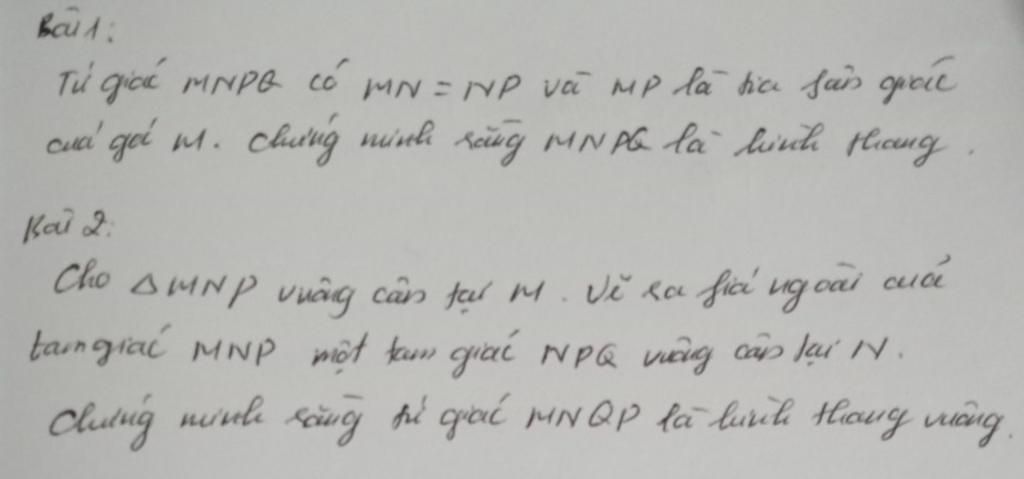 Bài 1:
Tứ giác MNPQ có MN = NP và MP là tia phân giác
của gói M. Chứng minh rằng MNPQ là hình thang.
Bài 2:
Cho Δ MNP vuông cân tại M. Vẽ ra phía ngoài của
tam giác MNP một tam giác NPQ vuông cân tại N.
Chứng minh rằng tứ giác MNQP là hình thang vuông.